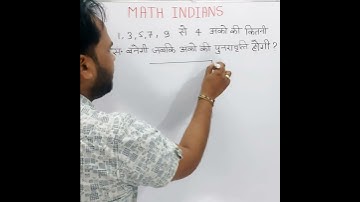 MATH INDIANS
1, 3, 5, 7, 9 से 4 अंको की कितनी
सं॰ बनेगी जबकि अंको की पुनरावृत्ति होगी ?